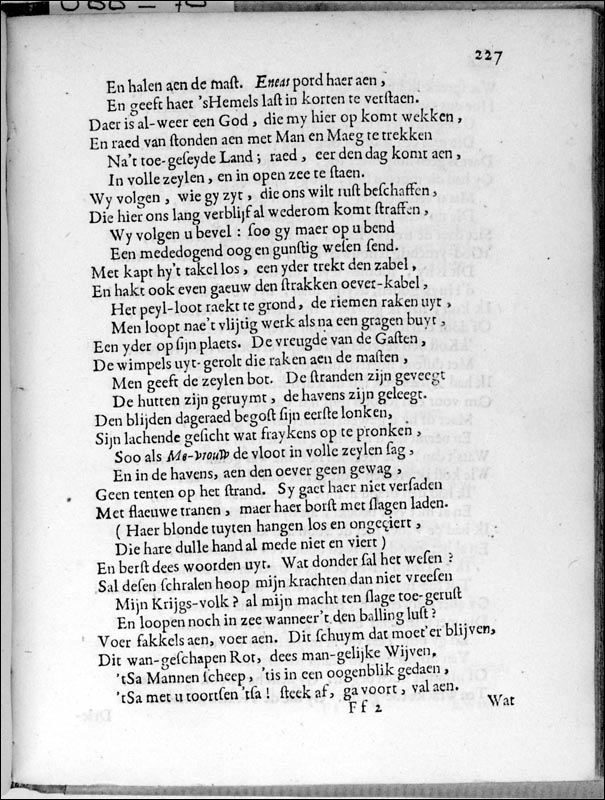 227
En halen aen de mast. Eneas pord haer aen,
En geeft haer 'sHemels last in korten te verstaen.
Daer is al-weer een God, die my hier op komt wekken,
En raed van stonden aen met Man en Maeg te trekken
Na't toe-geseyde Land; raed, eer den dag komt aen,
In volle zeylen, en in open zee te staen.
Wy volgen, wie gy zyt, die ons wilt rust beschaffen,
Die hier ons lang verblijf al wederom komt straffen,
Wy volgen u bevel: soo gy maer op u bend
Een mededogend oog en gunstig wesen send.
Met kapt hy't takel los, een yder trekt den zabel,
En hakt ook even gaeuw den strakken oever-kabel,
Het peyl-loot raekt te grond, de riemen raken uyt,
Men loopt nae't vlijtig werk als na een gragen buyt,
Een yder op sijn plaets. De vreugde van de Gasten,
De wimpels uyt-gerolt die raken aen de masten,
Men geeft de zeylen bot. De stranden zijn geveegt
De hutten zijn geruymt, de havens zijn geleegt.
Den blijden dageraed begost sijn eerste lonken,
Sijn lachende gesicht wat fraykens op te pronken,
Soo als Me-vrouw de vloot in volle zeylen sag,
En in de havens, aen den oever geen gewag,
Geen tenten op het strand. Sy gaet haer niet versaden
Met flaeuwe tranen, maer haer borst met slagen laden.
(Haer blonde tuyten hangen los en ongeçiert,
Die hare dulle hand al mede niet en viert)
En berst dees woorden uyt. Wat donder sal het wesen?
Sal desen schralen hoop mijn krachten dan niet vreesen
Mijn Krijgs-volk? al mijn macht ten slage toe-gerust
En loopen noch in zee wanneer't den balling lust?
Voer fakkels aen, voer aen. Dit schuym dat moet'er blijven,
Dit wan-geschapen Rot, dees man-gelijke Wijven,
'tSa Mannen scheep, 'tis in een oogenblik gedaen,
'tSa met u toortsen 'tsa! steek af, ga voort, val aen.
Ff 2
Wat